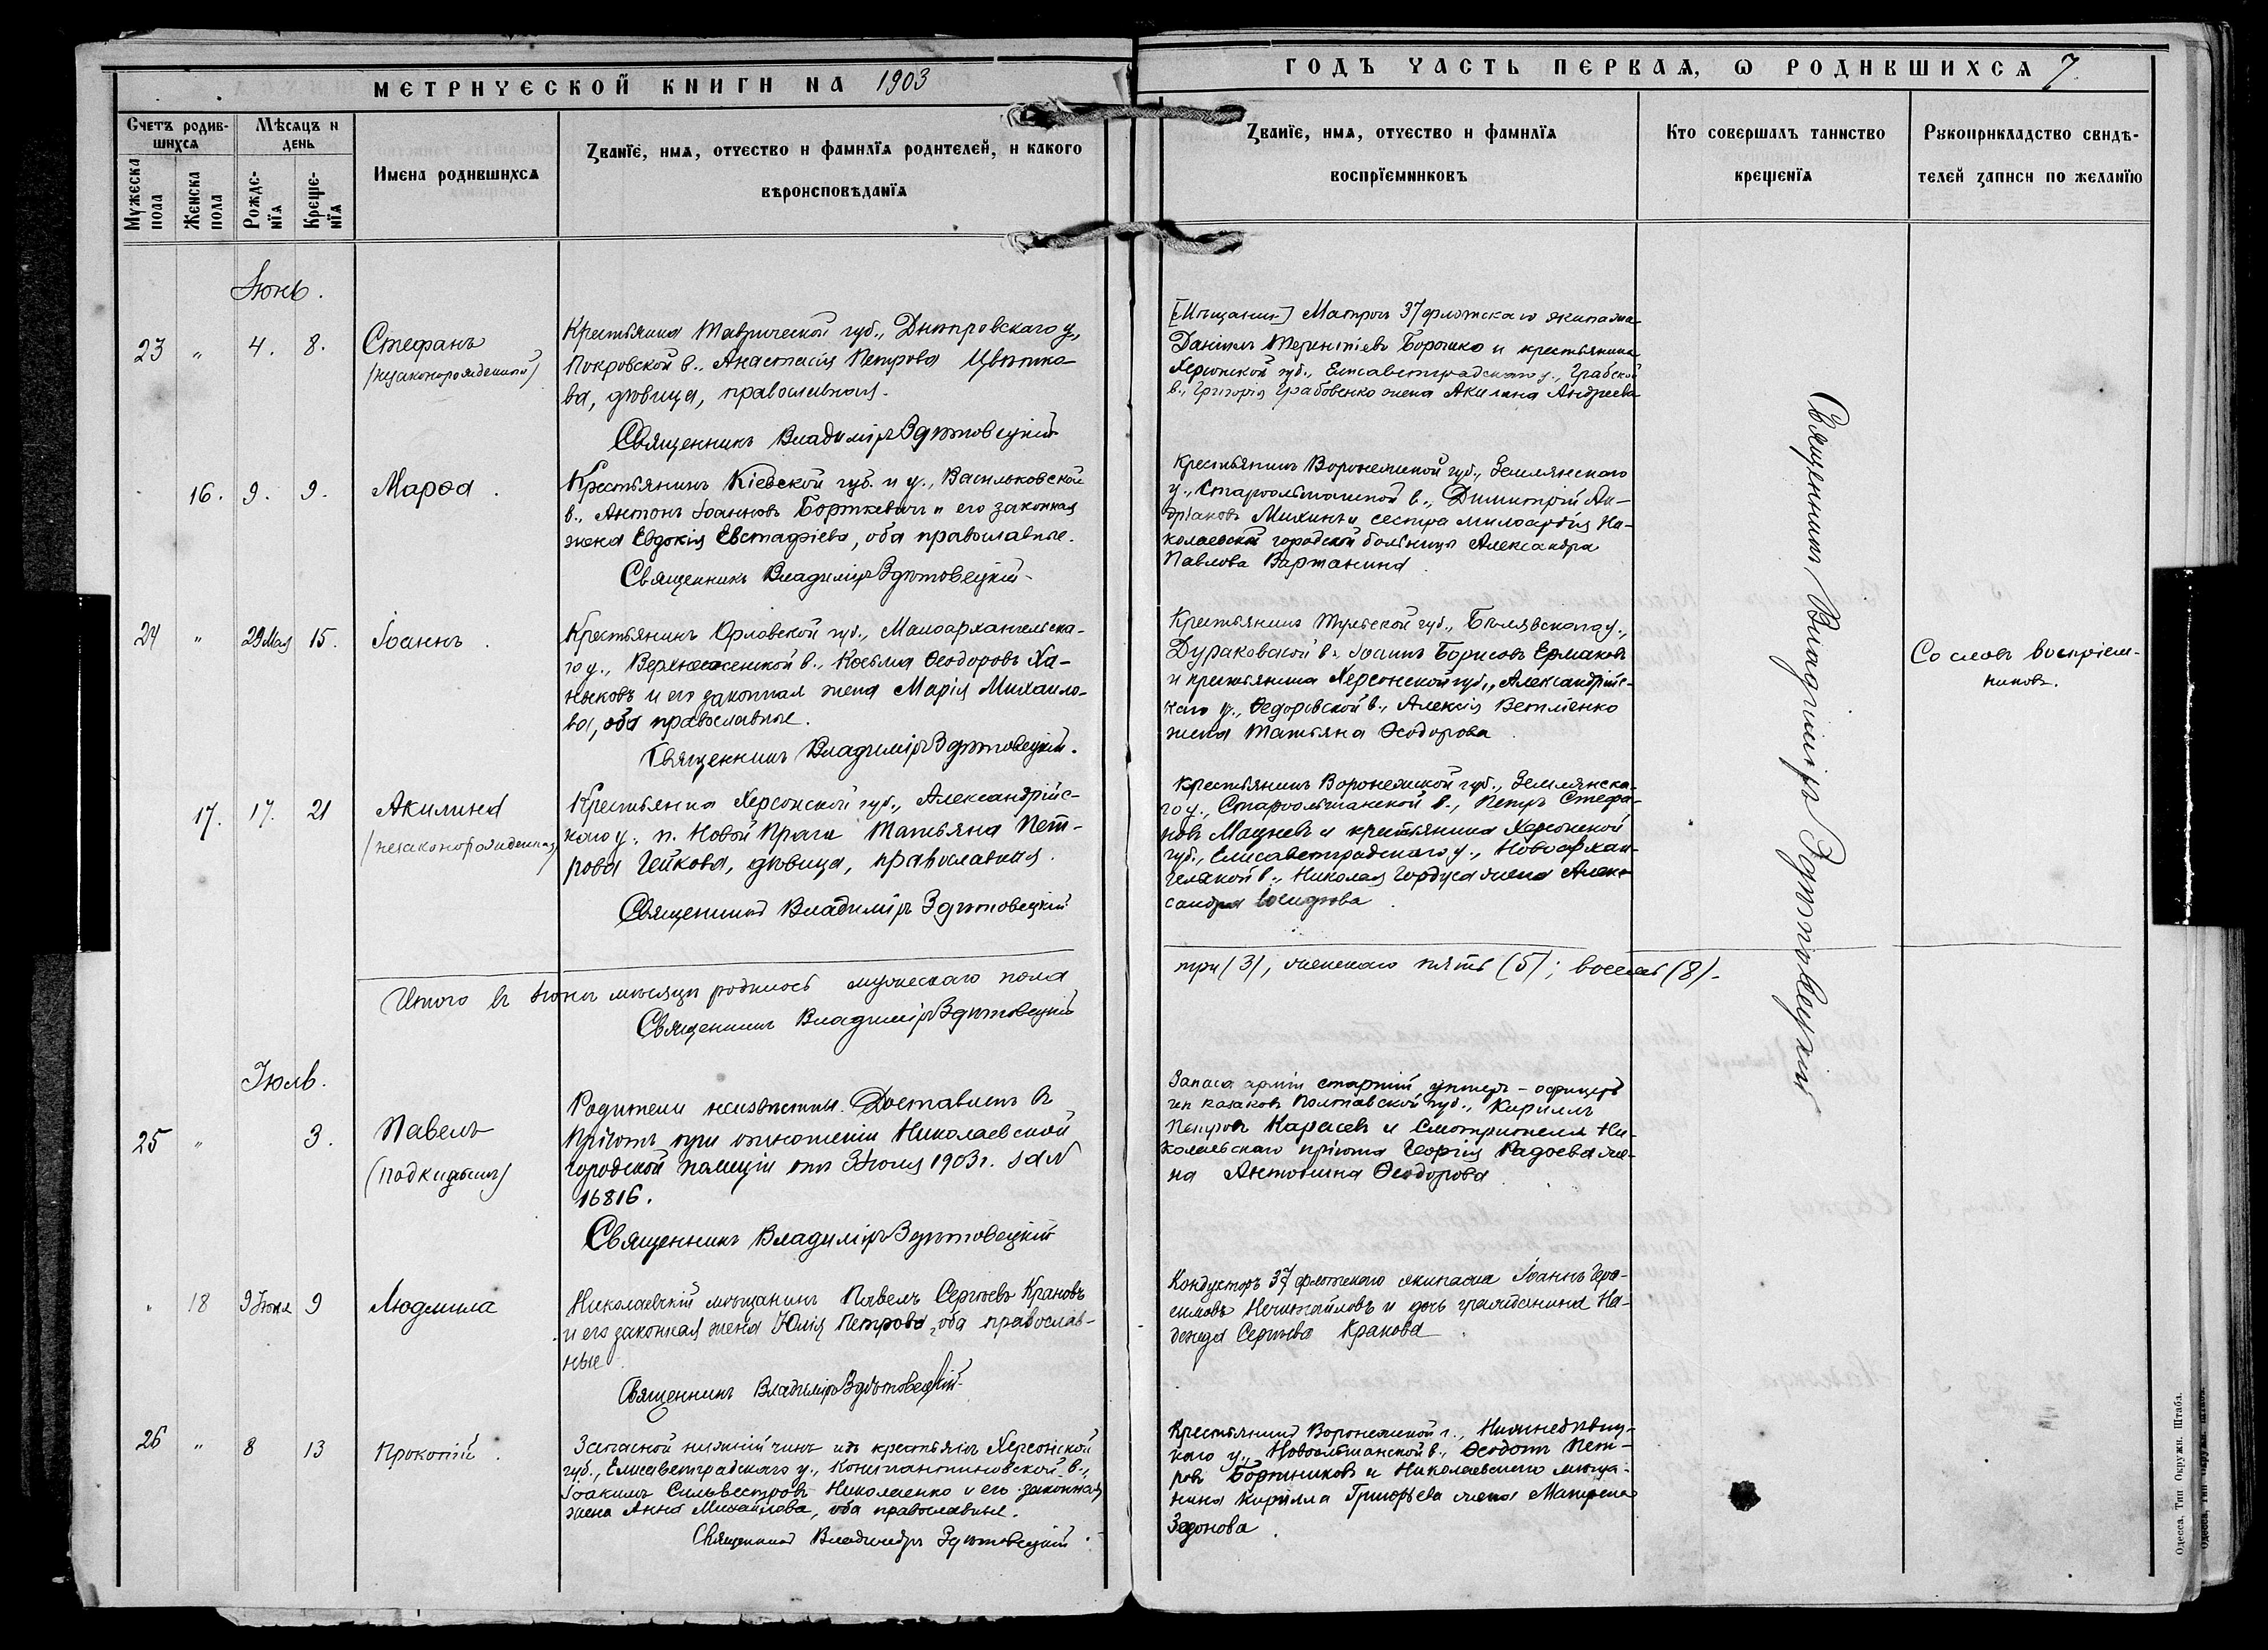 МЕТРИЧЕСКОЙ КНИГИ НА 1903
ГОДЪ ЧАСТЬ ПЕРВАЯ, Ѡ РОДИВШИХСЯ 7.
Счетъ родив-
шихся
Мѣсяцъ и
день
Мужеска
пола
Женска
пола
Рожде-
нїя
Креще-
нїя
Имена родившихся
Званїе, имя, отчество и фамилїя родителей, и какого
вѣроисповѣданїя
Званїе, имя, отчество и фамилїя
воспрїемниковъ
Кто совершалъ таинство
крещенїя
Рукоприкладство свидѣ-
телей записи по желанїю
Іюнь.
23 " 4. 8. Стефанъ
/незаконорожденный/
Крестьянка Таврической губ., Днѣпровскаго у.,
Покровской в., Анастасія Петрова Цвѣтко-
ва, дѣвица, православная.
Священникъ Владиміръ Здѣтовецкій
[Мѣщанин] Матросъ 37 флотскаго экипажа
Даніилъ Терентіевъ Борошко и крестьянина
Херсонской губ., Елисаветградскаго у., Грабской
в., Григорія Грабовенко жена Акилина Андреева
16. 9. 9. Марѳа.
Крестьянинъ Кіевской губ. и у., Васильковской
в., Антонъ Іоанновъ Борткевичъ и его законная
жена Евдокія Евстафіева, оба православные.
Священникъ Владиміръ Здѣтовецкій
Крестьянинъ Воронежской губ., Землянскаго
у., Староольшанской в., Димитрій Ан-
дріановъ Михинъ и сестра милосердія Ни-
колаевской городской больницы Александра
Павлова Вартанина
24 " 29 Мая 15. Іоаннъ.
Крестьянинъ Орловской губ., Малоархангельска-
го у., Верхососенской в., Косьма Ѳеодоровъ Ха-
ныковъ и его законная жена Марія Михаило-
ва, оба православные.
Священникъ Владиміръ Здѣтовецкій.
Крестьянинъ Тульской губ., Бѣлявскаго у.,
Дураковской в., Іоаннъ Борисовъ Ермаковъ
и крестьянина Херсонской губ., Александрійс-
каго у., Ѳедоровской в., Алексія Ветменко
жена Татьяна Ѳеодорова.
Со словъ воспріем-
никовъ.
17. 17. 21 Акилина
/незаконорожденная/
Крестьянка Херсонской губ., Александрійс-
каго у., п. Новой Праги Татьяна Пет-
рова Гейкова, дѣвица, православная.
Священникъ Владиміръ Здѣтовецкій
Крестьянинъ Воронежской губ., Землянска-
го у., Староольшанской в., Петръ Стефа-
новъ Мацневъ и крестьянина Херсонской
губ., Елисаветградскаго у., Новоархан-
гельской в., Николая Гордуса жена Алек-
сандра
Итого въ Іюнѣ мѣсяцѣ родилось мужескаго пола
три (3), женскаго пять (5); восемь (8).
Священникъ Владиміръ Здѣтовецкій
Іюль.
25 " 3. Павелъ
(подкидышъ)
Родители неизвѣстны. Доставленъ въ
Пріютъ при отношеніи Николаевской
городской полиціи отъ 3 Іюля 1903 г. за №
16816.
Священникъ Владиміръ Здѣтовецкій
Запаса арміи старшій унтеръ-офицеръ
изъ казаковъ Полтавской губ., Кириллъ
Петровъ Карасевъ и Смотрителя Ни-
колаевскаго пріюта Георгія Радоева же-
на Антонина Ѳеодорова.
" 18 9 Іюня 9 Людмила
Николаевскій мѣщанинъ Павелъ Сергіевъ Крановъ
и его законная жена Юлія Петрова, оба православ-
ные.
Священникъ Владиміръ Здѣтовецкій
Кондукторъ 37 флотскаго экипажа Іоаннъ Гера-
симовъ Нечитайловъ и дочь гражданина На-
дежда Сергіева Кранова.
26 " 8 13 Прокопій.
Запасной нижній чинъ изъ крестьянъ Херсонской
губ., Елисаветградскаго у., Константиновской в.,
Іоакимъ Сильвестровъ Николаенко и его законная
жена Анна Михайлова, оба православные.
Священникъ Владиміръ Здѣтовецкій.
Крестьянинъ Воронежской г., Нижнедѣвиц-
каго у., Новоольшанской в., Ѳеодотъ Пет-
ровъ Бортниковъ и Николаевскаго мѣща-
нина Кирилла Григорьева жена Матрена
Задонова.
Священникъ Владиміръ Здѣтовецкій
Одесса, Тип Окружн. Штаба.